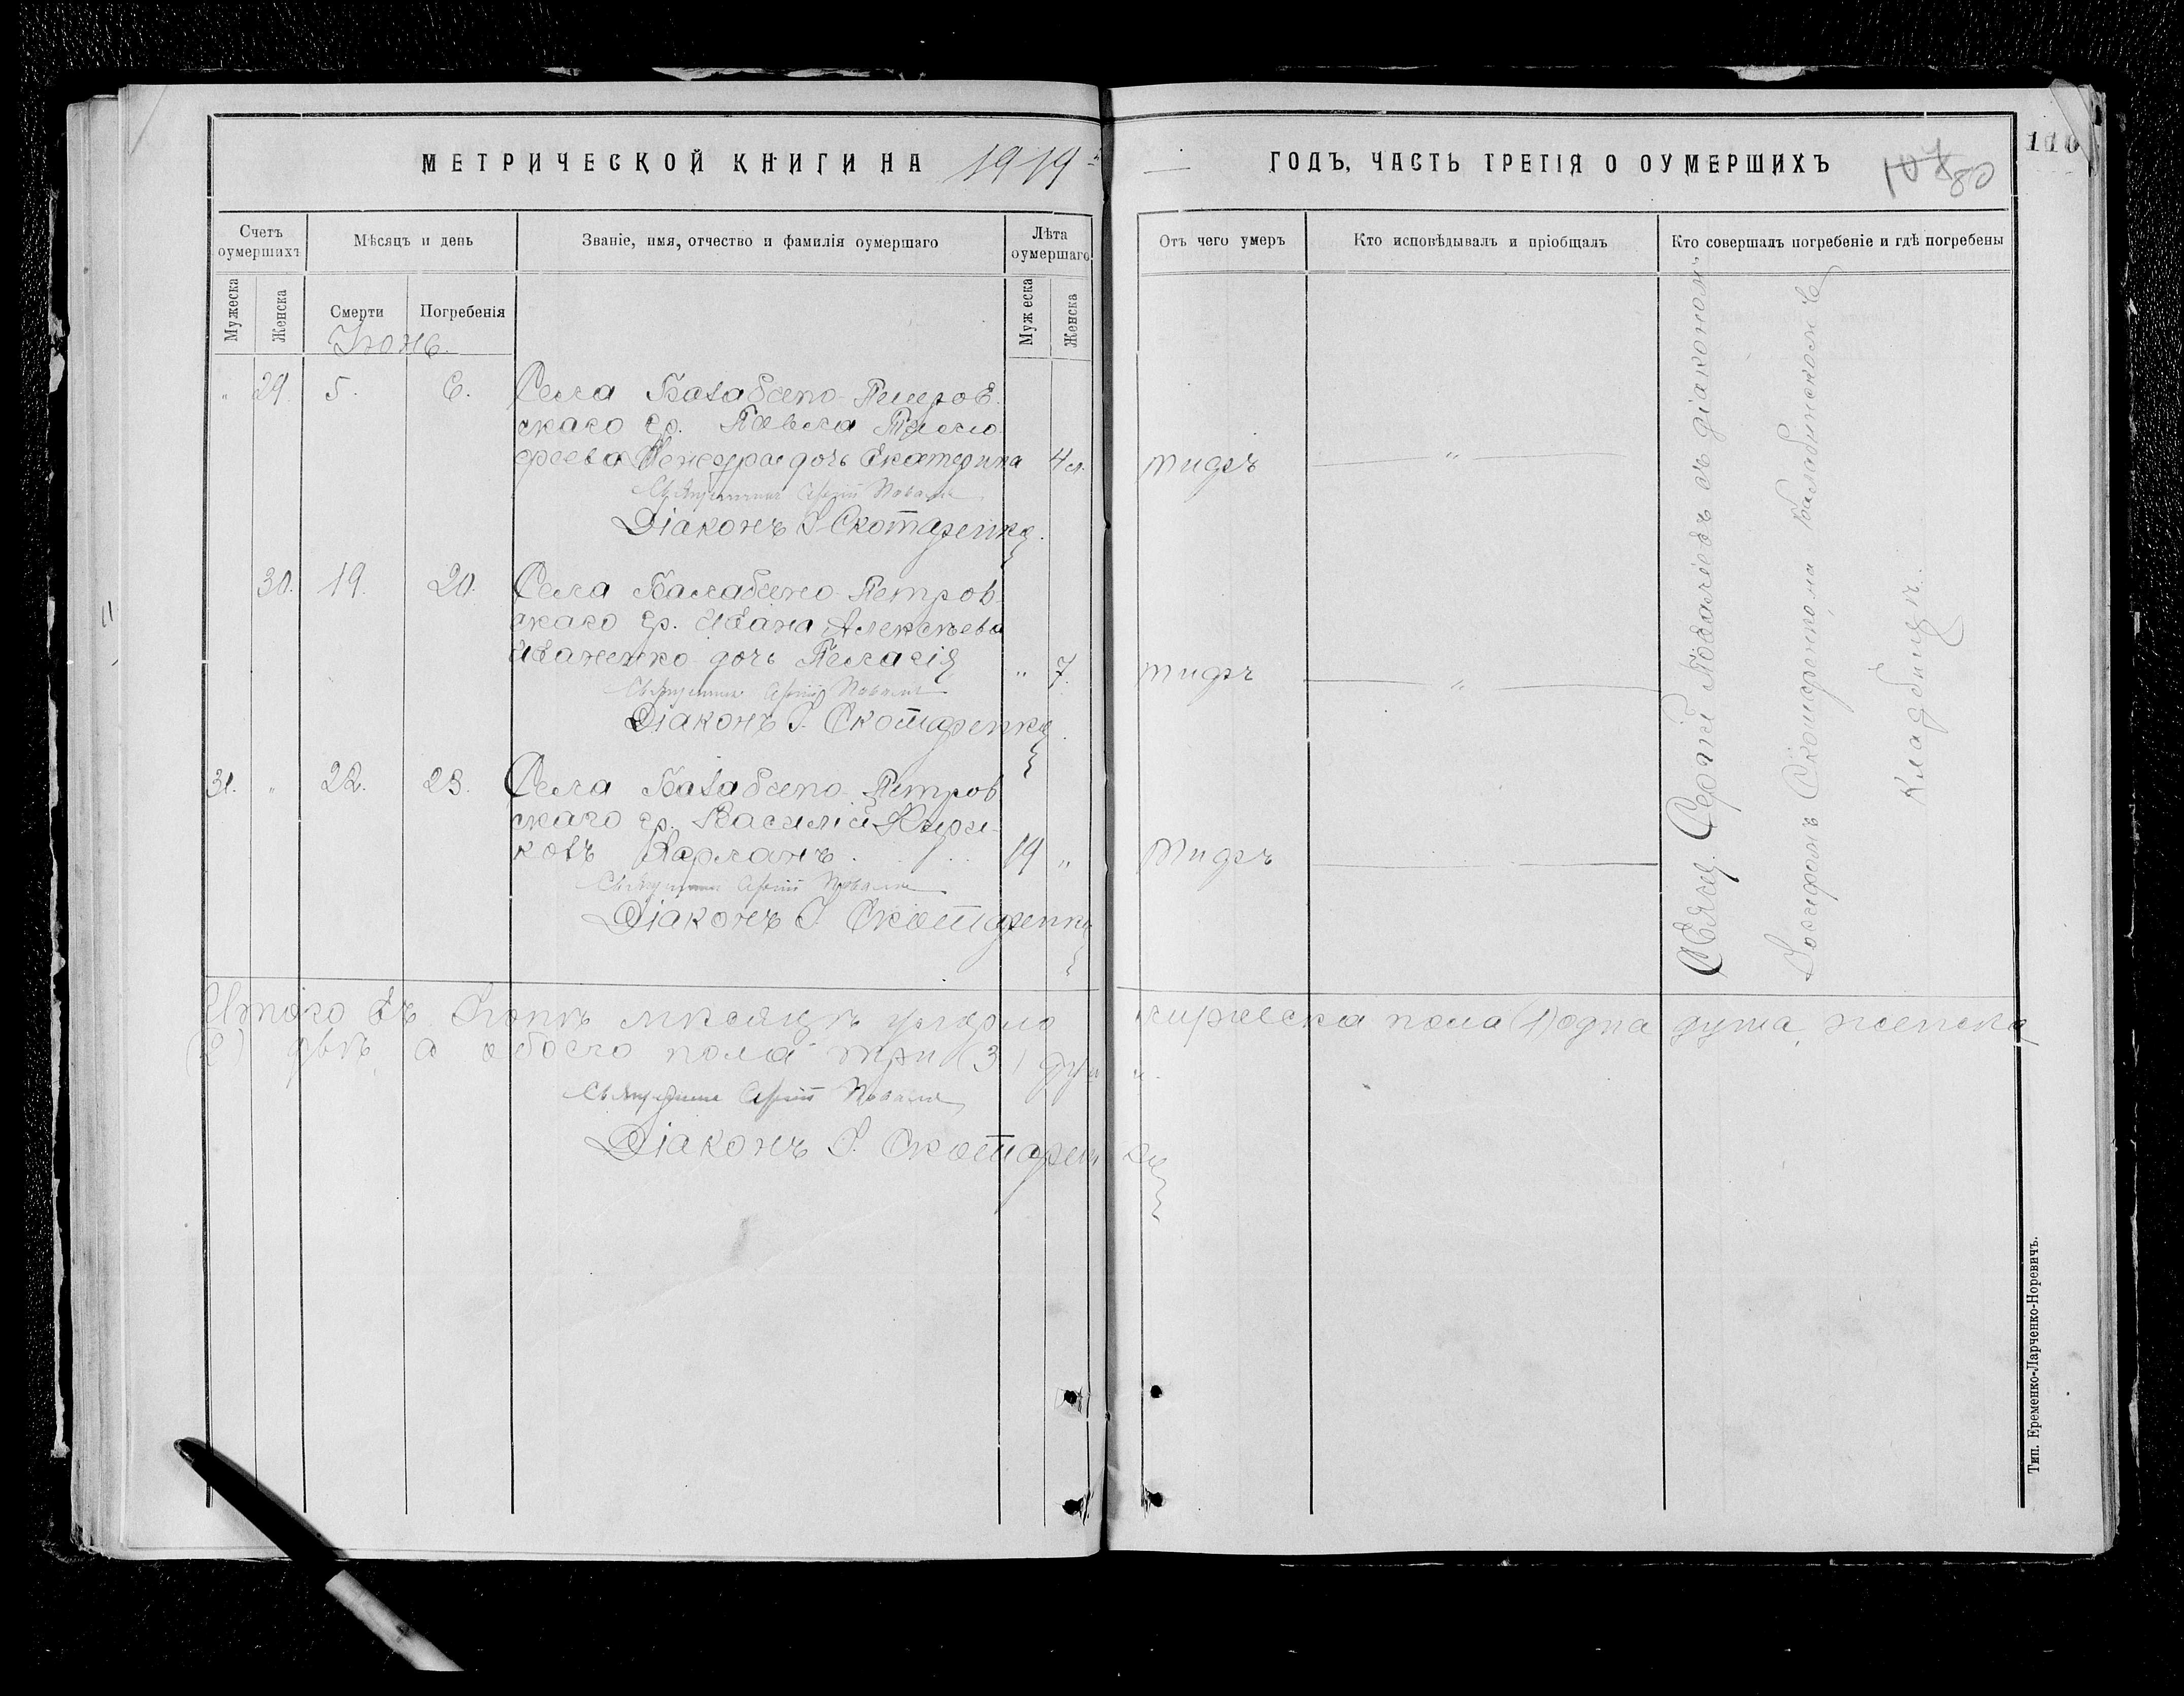 МЕТРИЧЕСКОЙ КНИГИ НА 1919
ГОДЪ, ЧАСТЬ ТРЕТІЯ О ОУМЕРШИХЪ
107 80
110
Счетъ оумершихъ
Мѣсяцъ и день
Званіе, имя, отчество и фамилія оумершаго
Лѣта оумершаго
Отъ чего умеръ
Кто исповѣдывалъ и пріобщалъ
Кто совершалъ погребеніе и гдѣ погребены
Мужеска
Женска
Смерти
Погребенія
Мужеска
Женска
Іюнь.
" 29. 5. 6. Села Балабино-Петров-
скаго гр. Павла
дочь Екатерина 4 тифъ "
Священникъ Сергій Повалѣевъ
Діаконъ І. Скотаренко.
30. 19. 20. Села Балабино-Петров-
скаго гр. Ивана Алексѣева
Иваненко дочь Пелагія " 7. тифъ "
Священникъ Сергій Повалѣевъ
Діаконъ І. Скотаренко.
31. " 22. 23. Села Балабино-Петров
скаго гр. Василій Кири-
ковъ Харланъ. 19 " тифъ
Священникъ Сергій Повалѣевъ
Діаконъ І. Скотаренко
Свящ. Сергій Повалѣевъ съ діакономъ
Іосифомъ Скотаренкомъ на Балабинскомъ
кладбищѣ.
Итого въ Іюнѣ мѣсяцѣ умерло мужеска пола (1) одна душа, женска
(2) двѣ, а обоего пола три (3) душ
Священникъ Сергій Повалѣевъ
Діаконъ І. Скотаренко
Тип. Еременко-Ларченко-Норевичъ.